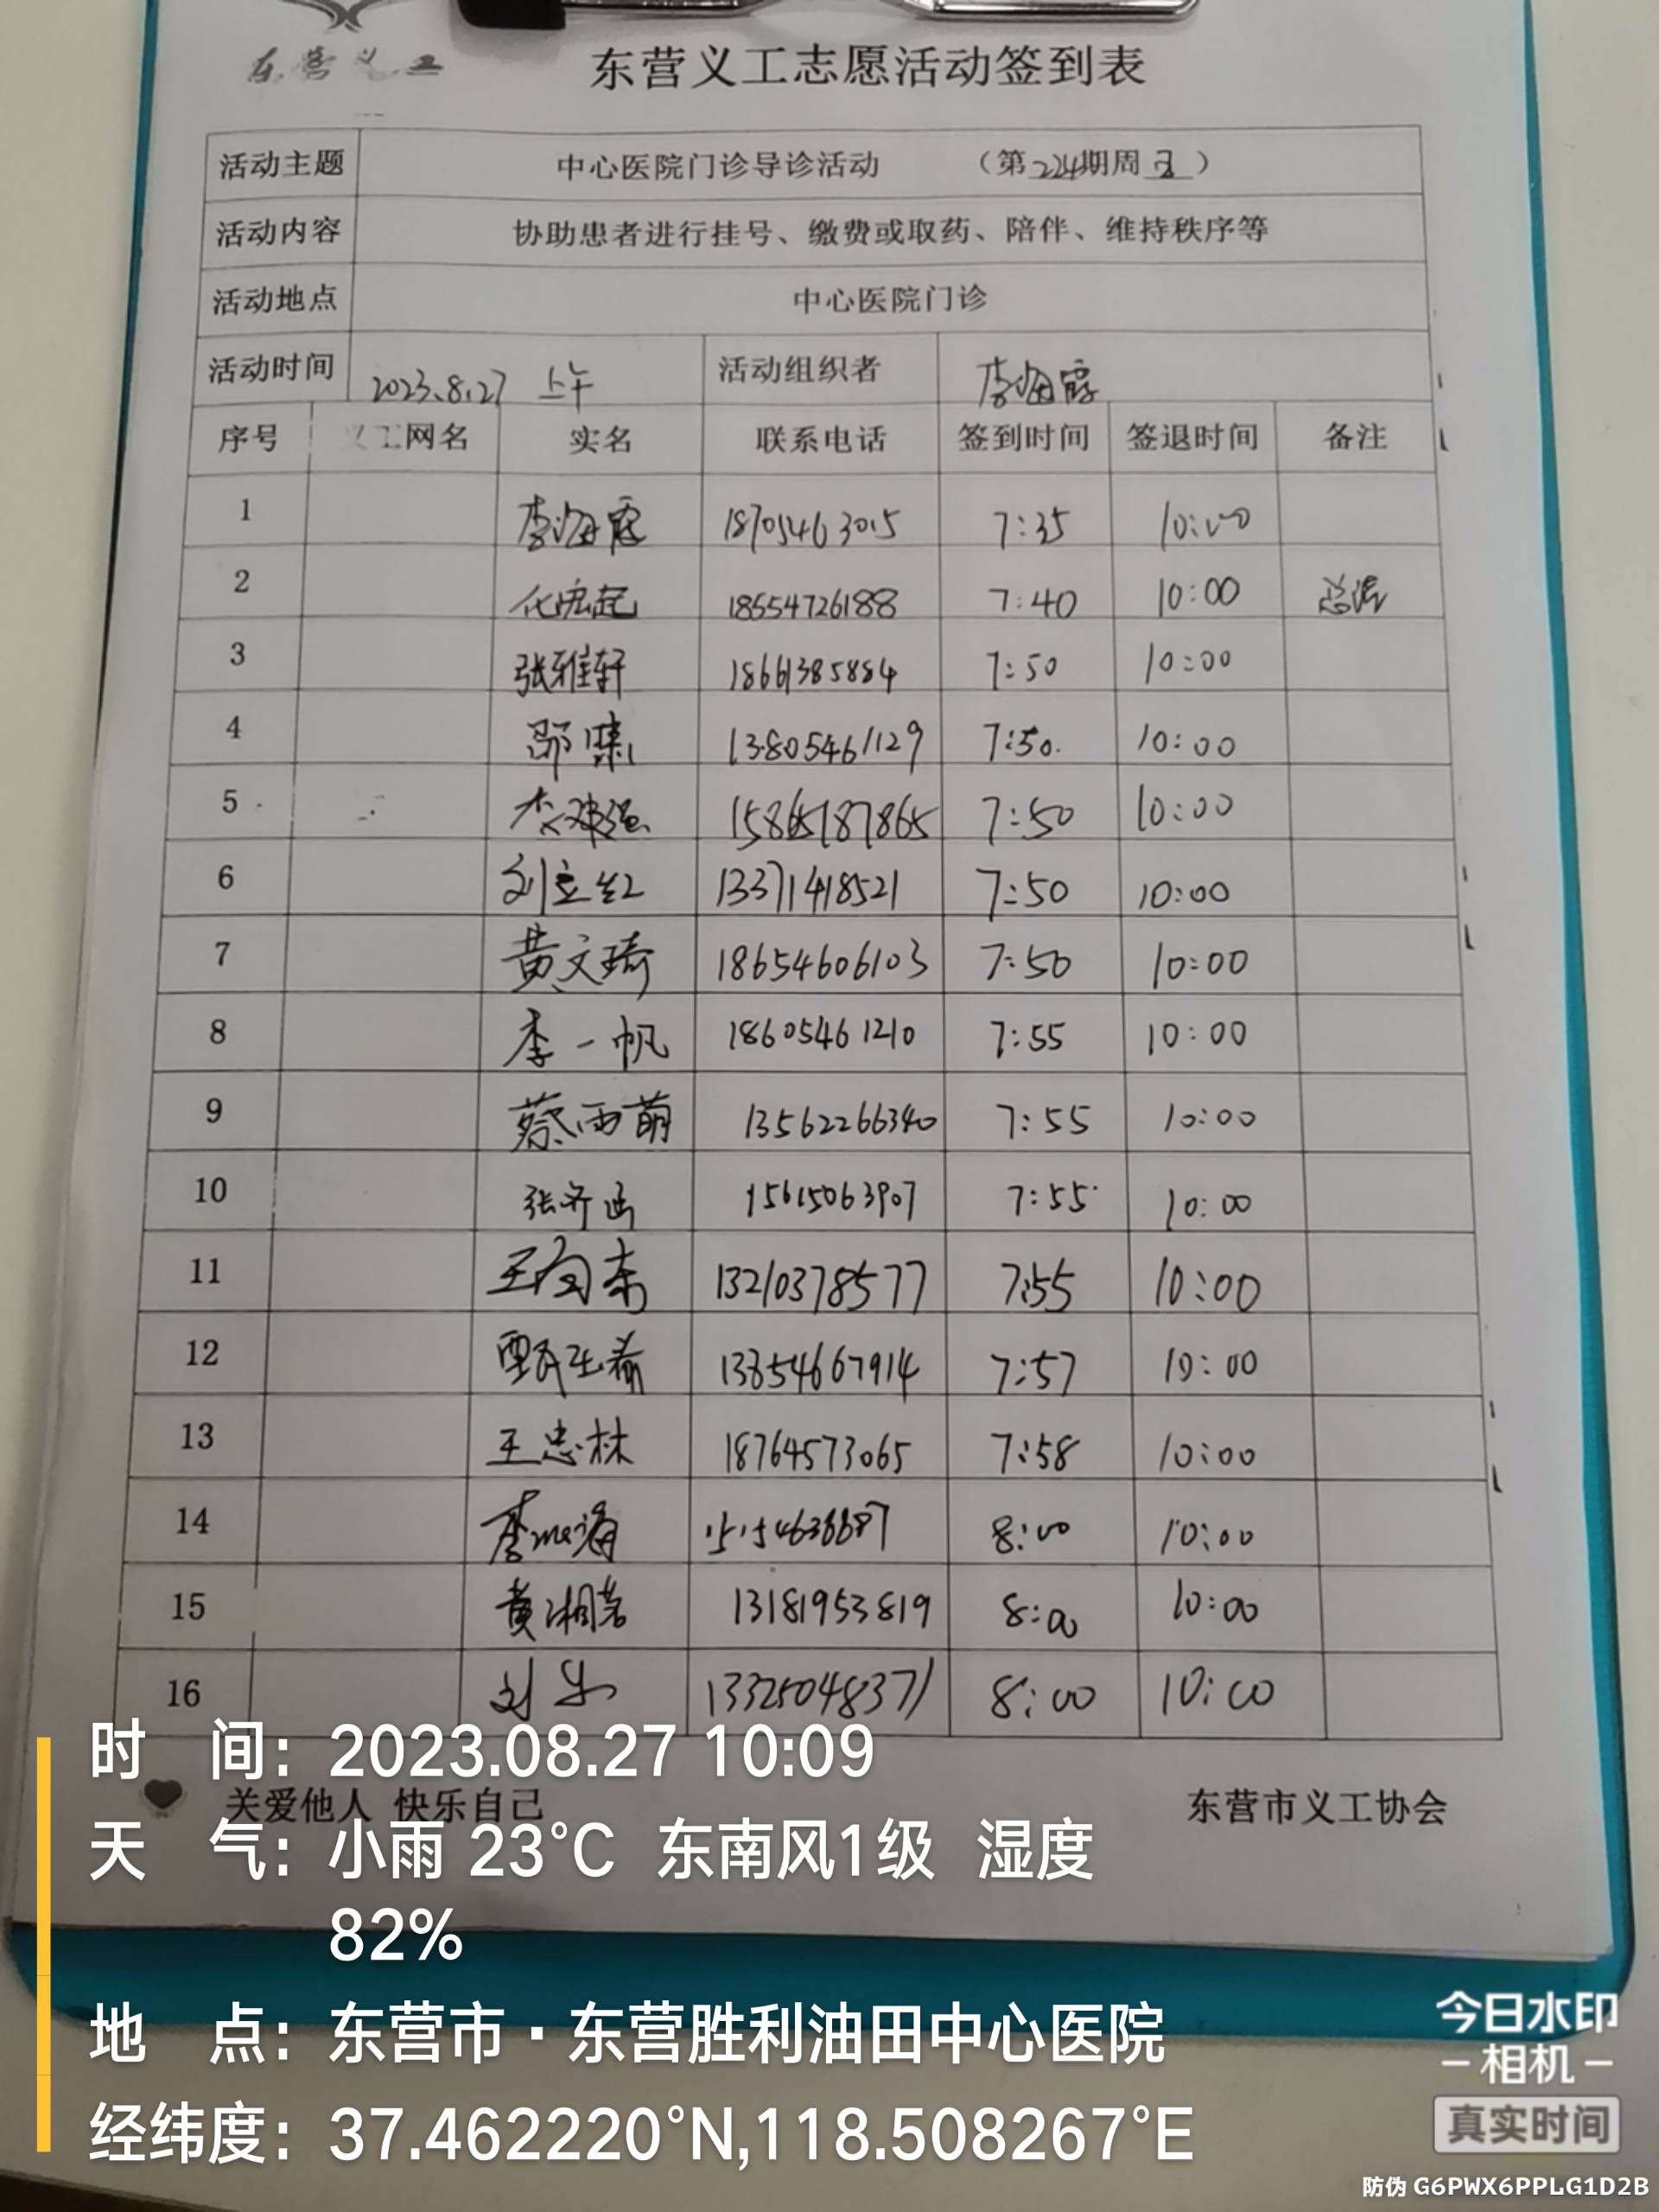 东营义工
东营义工志愿活动签到表
活动主题 中心医院门诊导诊活动 （第224期周 ）
活动内容 协助患者进行挂号、缴费或取药、陪伴、维持秩序等
活动地点 中心医院门诊
活动时间 2023.8.27 上午 活动组织者 李海霞
序号 义工网名 实名 联系电话 签到时间 签退时间 备注
1 李海霞 18705463015 7:35 10:00
2 18554726188 7:40 10:00
3 张雅轩 18661385884 7:50 10:00
4 13805461129 7:50 10:00
5 15865187865 7:50 10:00
6 刘立红 13371418521 7:50 10:00
7 黄文琦 18654606103 7:50 10:00
8 李一帆 18605461210 7:55 10:00
9 蔡雨萌 13562266340 7:55 10:00
10 15615063907 7:55 10:00
11 13210378577 7:55 10:00
12 13854667914 7:57 10:00
13 王忠林 18764573065 7:58 10:00
14 8:00 10:00
15 黄湘茗 13181953819 8:00 10:00
16 刘乐 13325048371 8:00 10:00
关爱他人 快乐自己 东营市义工协会
时 间：2023.08.27 10:09
天 气：小雨 23℃ 东南风1级 湿度
82%
地 点：东营市·东营胜利油田中心医院
经纬度：37.462220°N,118.508267°E
今日水印
相机
真实时间
防伪 G6PWX6PPLG1D2B